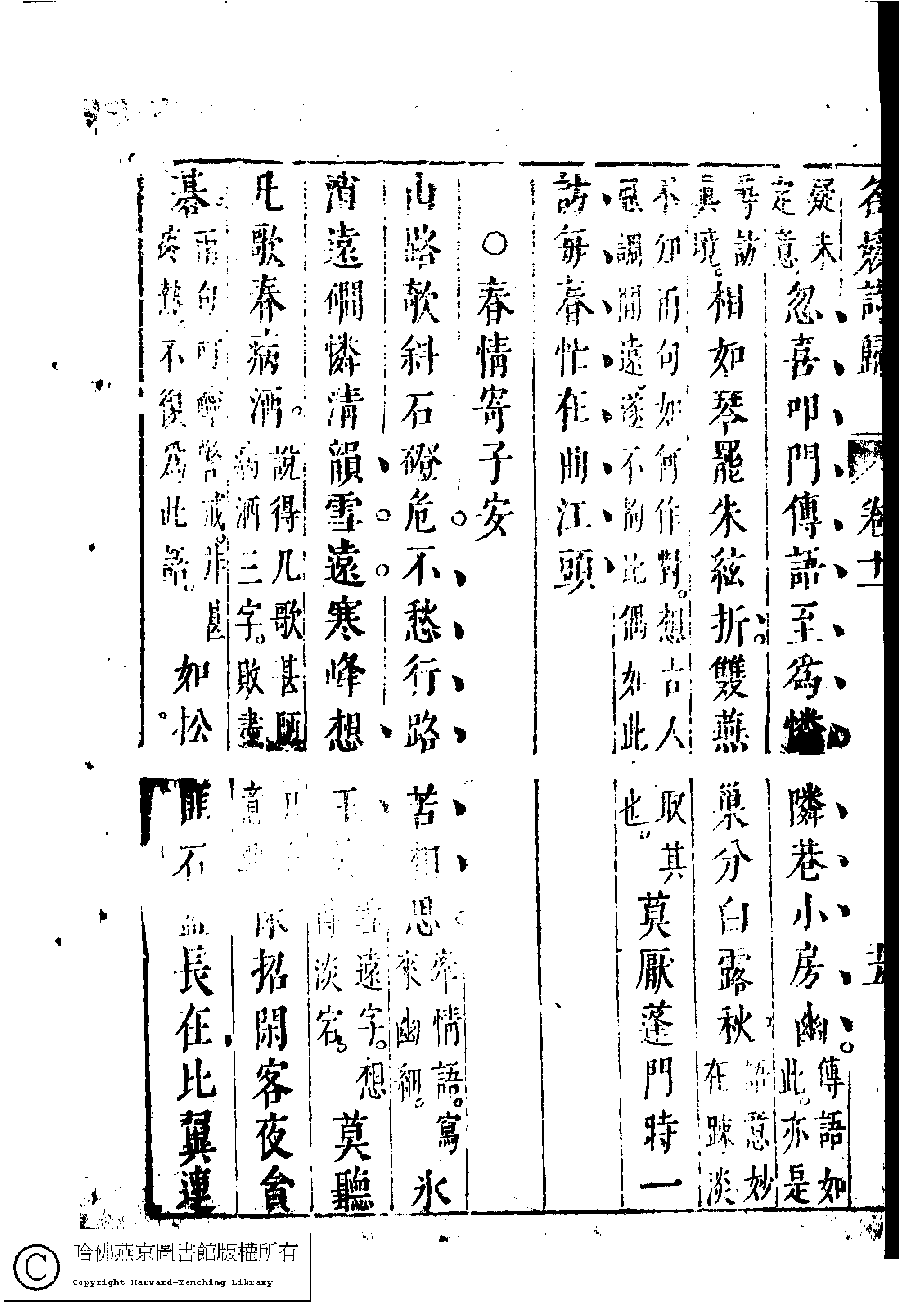 名媛詩歸 卷十一 五
疑未
定意
忽喜叩門傳語至為憐隣巷小房幽
傳語如
此亦是
尋訪
興境
相如琴罷朱絃折雙燕巢分白露秋
語意妙
在踈淡
不知兩句如何作對想古人取其
調開遠遂不拘比偶如此也
莫厭蓬門時一
訪每春忙在曲江頭
○春情寄子安
山路欹斜石磴危不愁行路苦相思
率情語寫
來幽細
氷
消遠礀憐清韻雪遠寒峰想玉
遠字想
得淡宕
莫聽
凡歌春病酒
說得凡歌甚
病酒三字敗盡意
休招閑客夜貪
碁
兩句可醉警戒非甚
疼熱不復為此語
如松匪石盟長在比翼連
哈佛燕京圖書館版權所有
Copyright Harvard-Yenching Library